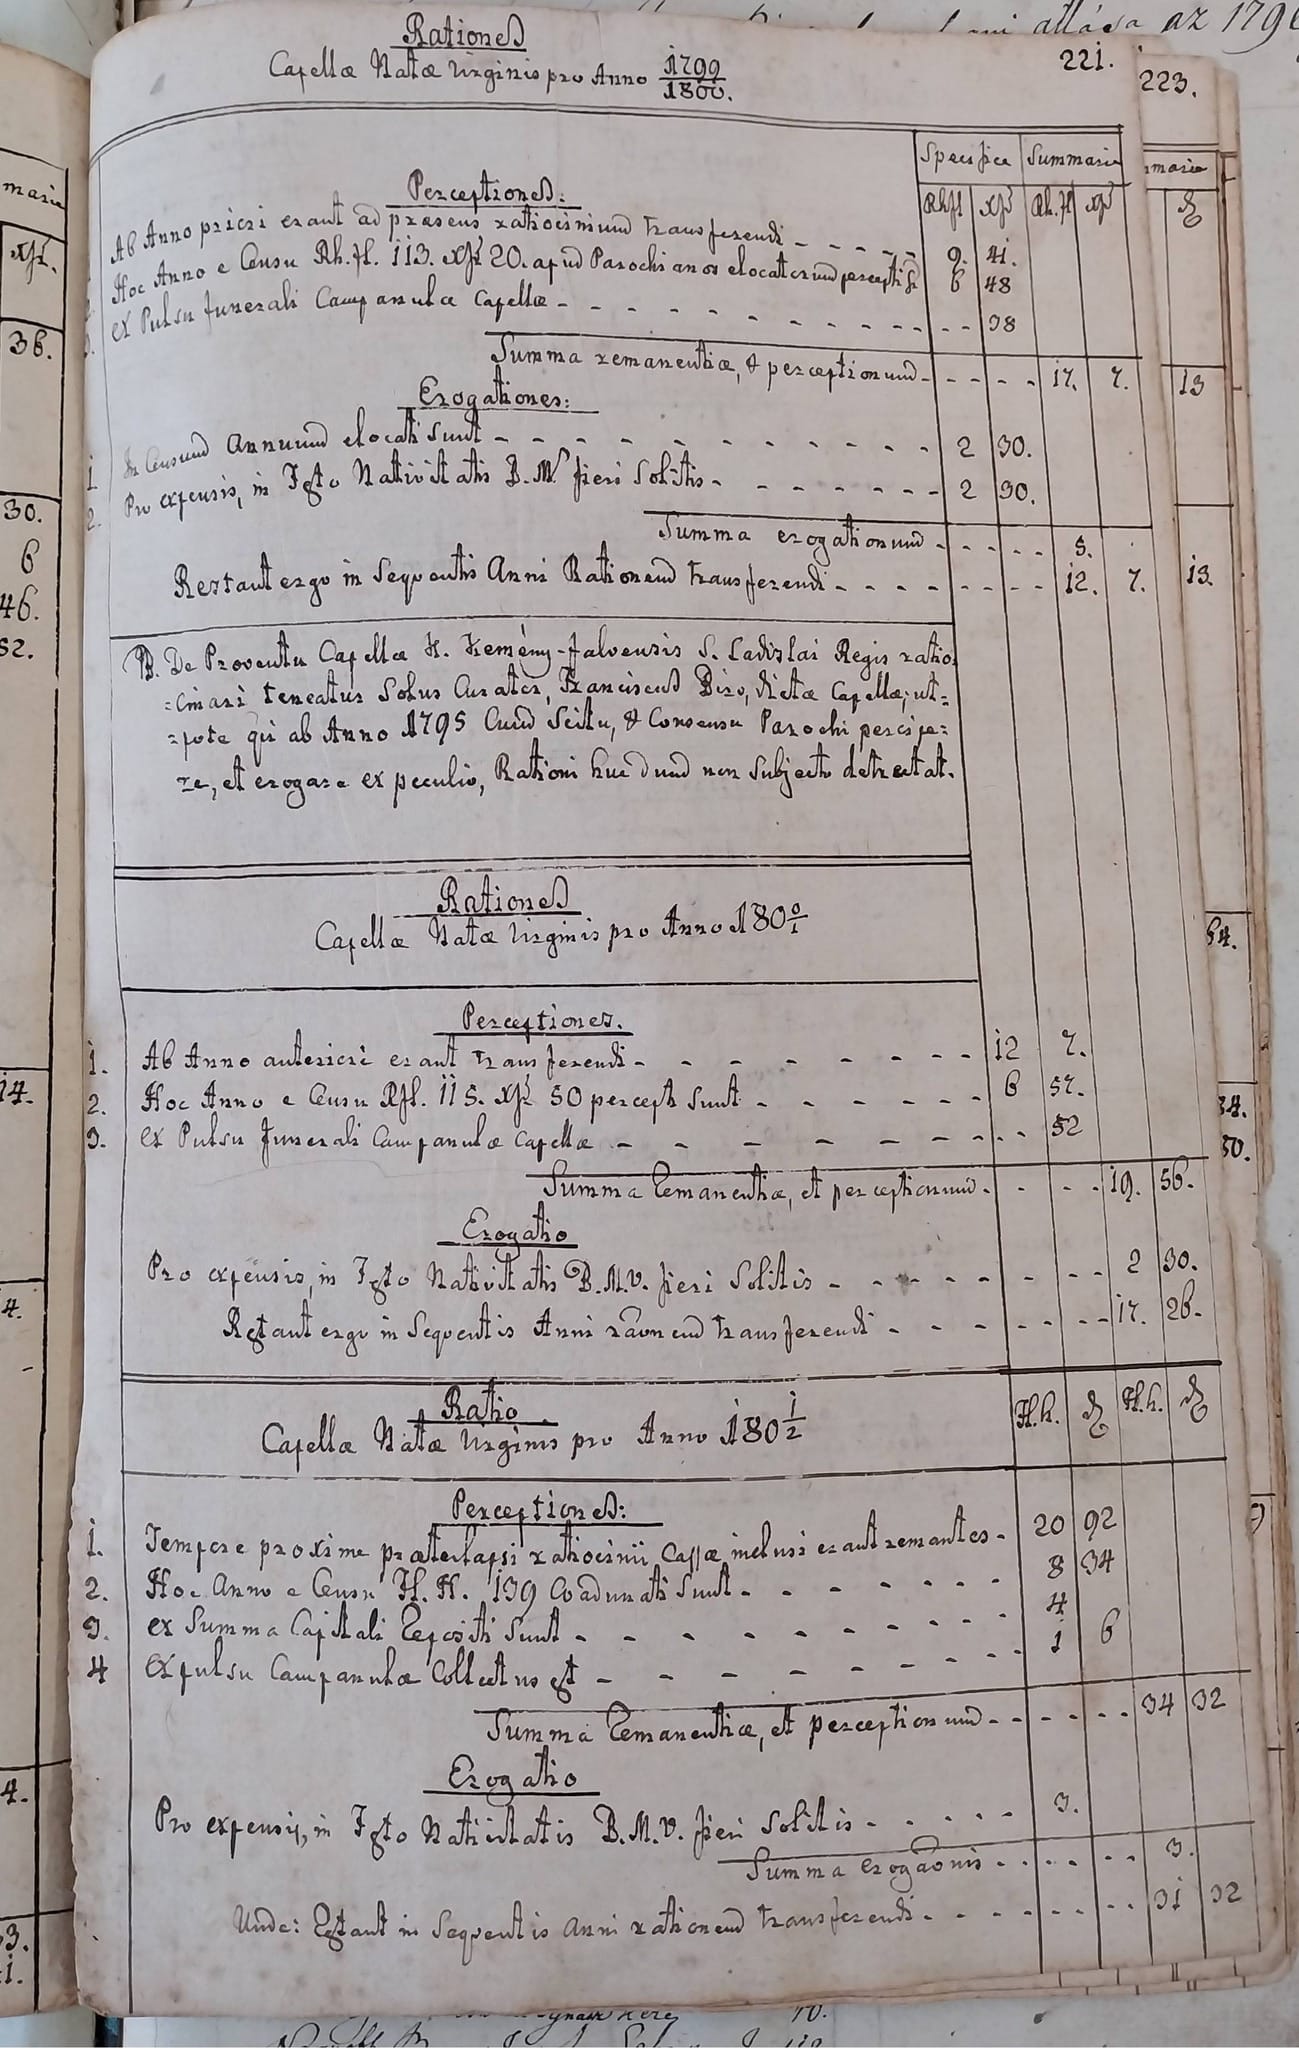 Rationes
Capellæ Natæ Virginis pro Anno 1799/1800.
221.
223.
Specifice Summarie
Rhfl xfr Rh.fl xfr
Perceptiones:
Ab Anno priori erant ad præsens ratiocinium transferendi - - - - - 9. 41.
Hoc Anno e Censu Rh.fl. 113. xfr 20. apud Parochianos elocatorum percepti st 6 48
ex Pulsu funerali Campanulæ Capellæ - - - - - - - - - - 38
Summa remanentiæ, & perceptionum - - - - - 17. 7.
Erogationes:
1 In Censum Annuum elocati sunt - - - - - - - - - 2 30.
2. Pro expensis, in Festo Nativitatis B.M. fieri Solitis - - - - - - - 2 30.
Summa erogationum - - - - - 5.
Restant ergo in Sequentis Anni Rationem transferendi - - - - - - - - 12. 7.
NB. De Proventu Capellæ K. Kemény-falvensis S. Ladislai Regis ratio-
=cinari teneatur Solus Curator, Franciscus Biro, dictæ Capellæ, ut=
=pote qui ab Anno 1795 Cum Scitu, & Consensu Parochi percipe=
re, et erogare ex peculio, Rationi huc dum non Subjecto detrectat.
Rationes
Capellæ Natæ Virginis pro Anno 180 0/1
Perceptiones.
1. Ab Anno anteriori erant transferendi - - - - - - - - 12 7.
2. Hoc Anno e Censu Rfl. 115. xfr 50 percepti sunt - - - - - - 6 57.
3. ex Pulsu funerali Campanulæ Capellæ - - - - - - - - 52
Summa Remanentiæ, et perceptionum - - - - 19. 56.
Erogatio
Pro expensis, in Festo Nativitatis B.M.V. fieri Solitis - - - - - - - - 2 30.
Restant ergo in Sequentis Anni raonem transferendi - - - - - - - 17. 26.
Ratio
Capellæ Natæ Virginis pro Anno 180 1/2
H.h. H.h.
Perceptiones:
1. Tempore proxime præterlapsi ratiocinii Cassæ inclusi erant remantes - 20 92
2. Hoc Anno e Censu H.H. 139 Coadunati Sunt - - - - - - - 8 34
3. ex Summa Capitali Repositi sunt - - - - - - - - 4
4 Ex pulsu Campanulæ Collectus est - - - - - - - - 1 6
Summa Remanentiæ, et perceptionum - - - - - - 34 32
Erogatio
Pro expensis, in Festo Nativitatis B.M.V. fieri Solitis - - - - - 3.
Summa erogaonis - - - - - 3.
Unde: Restant in Sequentis anni rationem transferendi - - - - - - - - 31 32